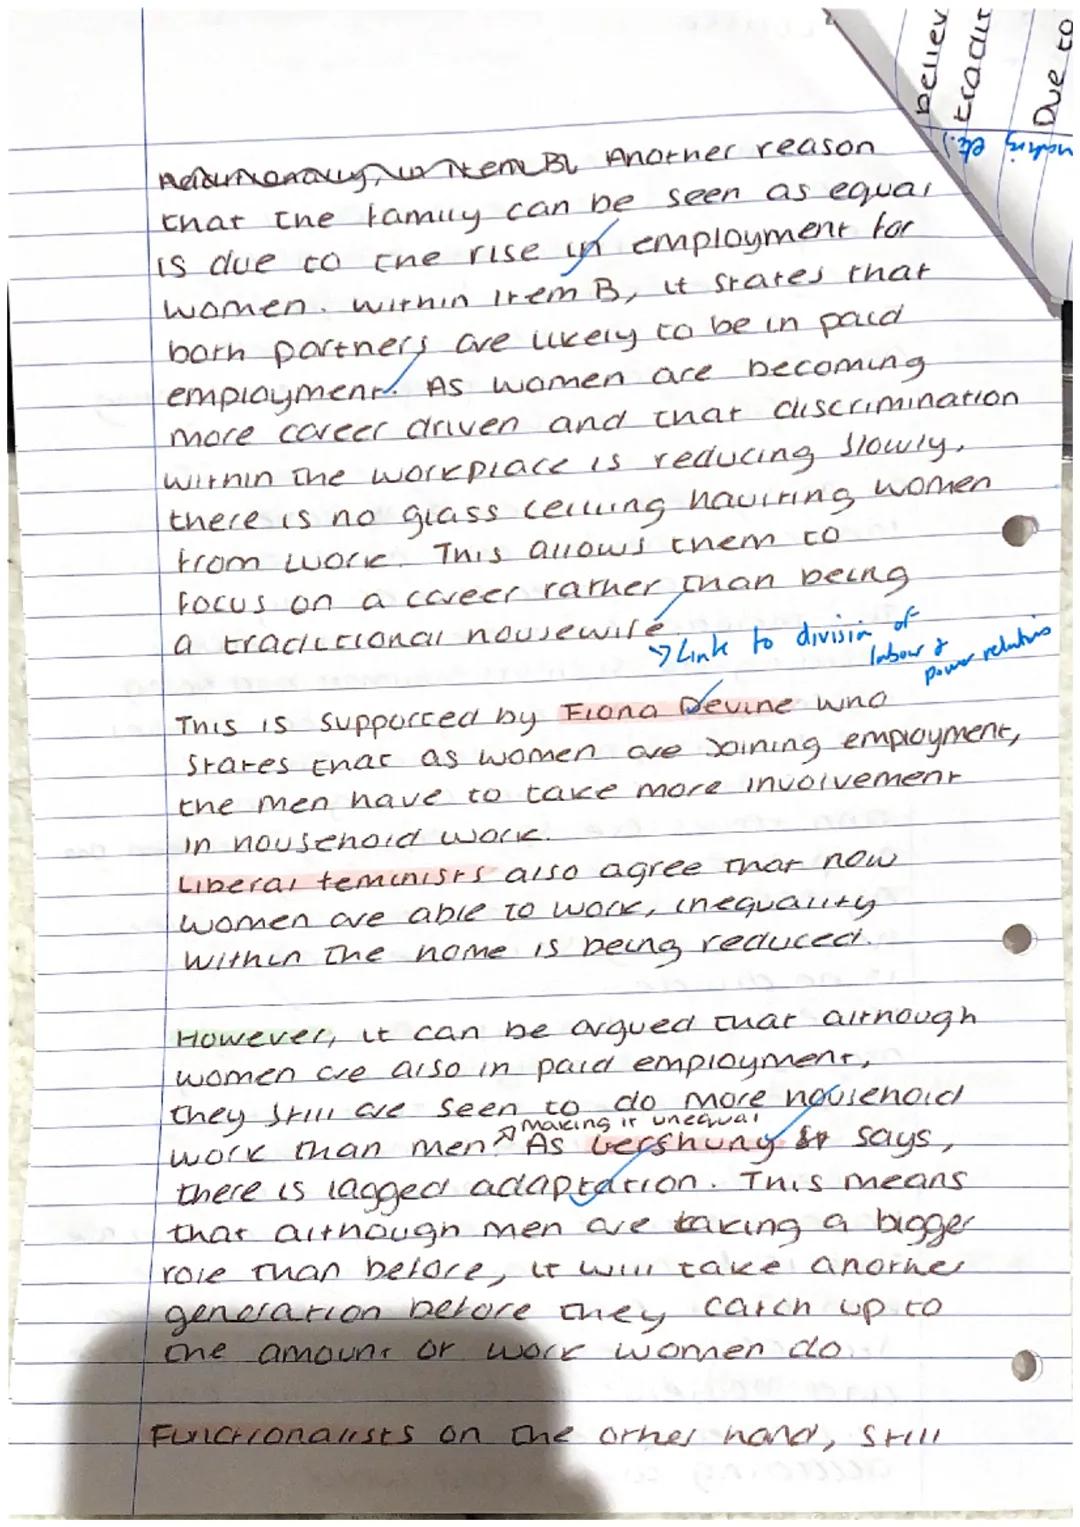 Additionally, in Item B, Another reason
that the family can be seen as equal
is due to the rise in employment for
women. Within Item B, it states that
both partners are likely to be in paid
employment. As women are becoming
more career driven and that discrimination
within the workplace is reducing slowly,
there is no glass ceiling
women
from work. This allows them to
focus on a career rather than being
a tradictional housewife
→ Link to division of
labour &
power relations
This is supported by Fiona Devine who
states that as women are joining employment,
the men have to take more involvement
in household work.
Liberal feminists also agree that now
women are able to work, inequality
within the home is being reduced.
However, it can be argued that although
women are also in paid employment,
they still are seen to do more household
making it unequal
work than men. As Gershuny says,
there is lagged adaptation. This means
that although men are taking a bigger
role than before, it will take another
generation before they catch up to
the amount of work women do.
Functionalists on the other hand, still
believ
tradit
etc.)
Due to